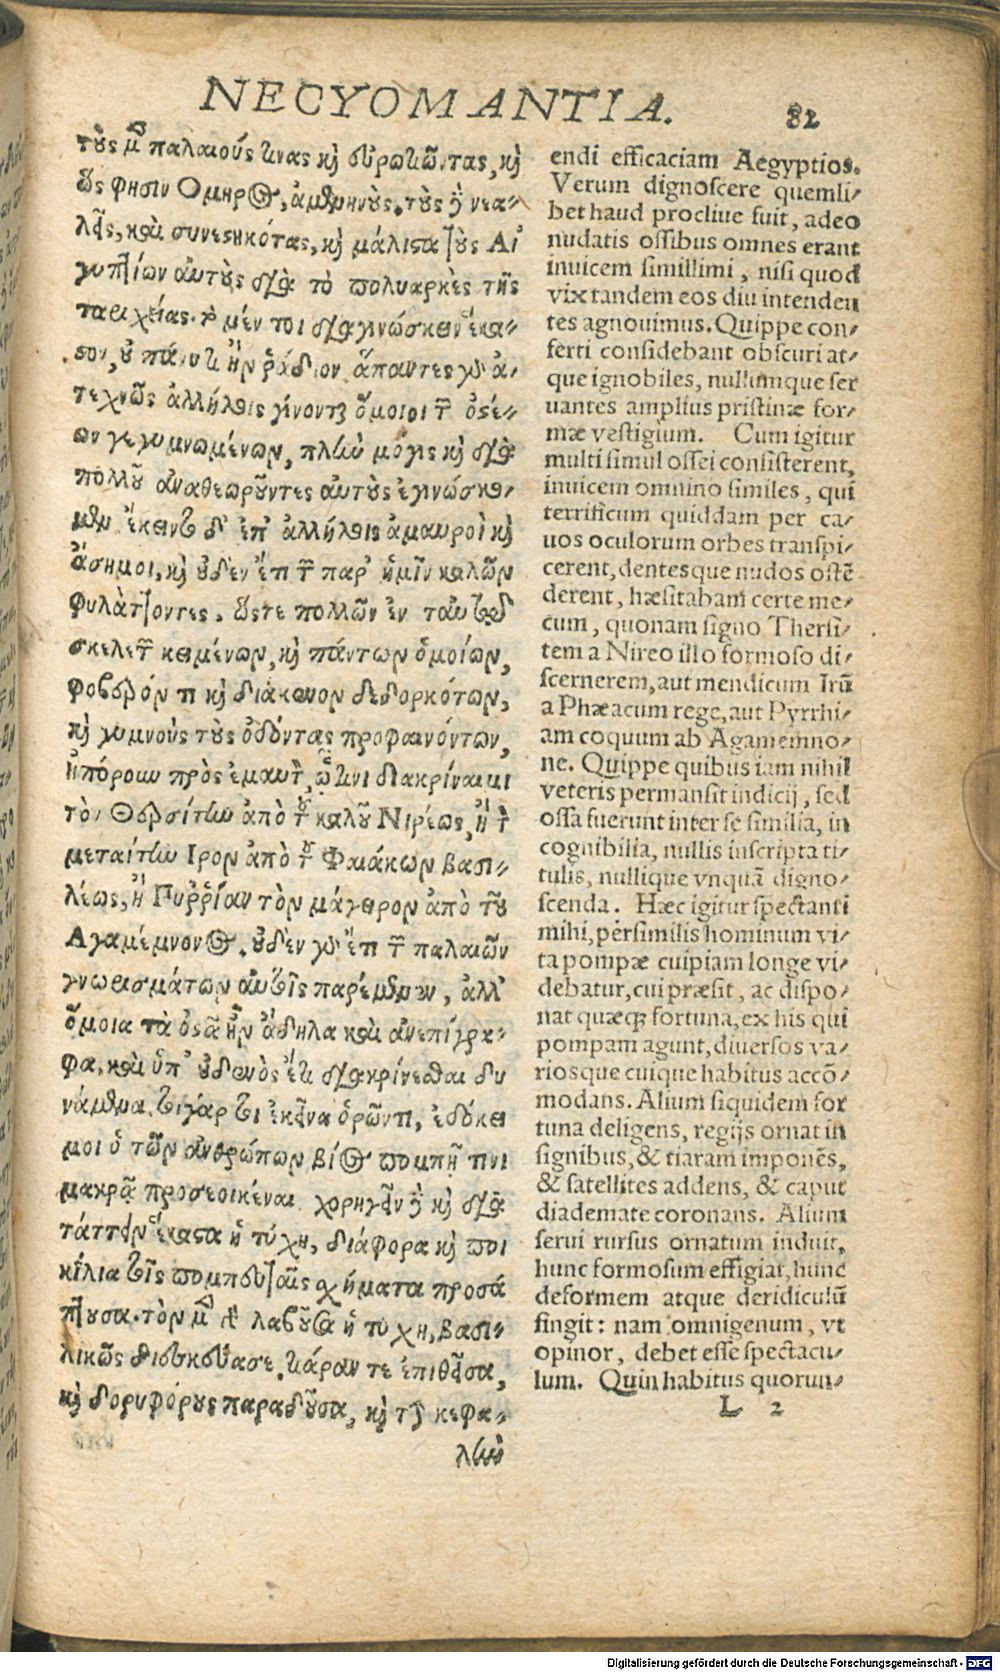 NECYOMANTIA. 82
τοὺς μὲν παλαιούς τινας καὶ εὐρωτιῶντας, καὶ
ὥς φησιν Ὅμηρος, ἀμενηνοὺς. τοὺς δὲ νεα-
λεῖς, καὶ συνεστηκότας, καὶ μάλιστα τοὺς Αἰ
γυπτίων αὐτοὺς διὰ τὸ πολυαρκὲς τῆς
ταριχείας. τὸ μέν τοι διαγινώσκειν ἕκα-
στον, οὐ πάνυ τι ἦν ῥᾴδιον ἅπαντες γὰρ ἀ-
τεχνῶς ἀλλήλοις γίνονται ὅμοιοι τῶν ὀστέ-
ων γεγυμνωμένων, πλὴν μόγις καὶ διὰ
πολλοῦ ἀναθεωροῦντες αὐτοὺς ἐγινώσκο-
μεν ἔκειντο δ' ἐπ' ἀλλήλοις ἀμαυροὶ καὶ
ἄσημοι, καὶ οὐδὲν ἔτι τῶν παρ' ἡμῖν καλῶν
φυλάττοντες. ὥστε πολλῶν ἐν ταυτῷ
σκελετῶν κειμένων, καὶ πάντων ὁμοίων,
φοβερόν τι καὶ διάκενον δεδορκότων,
καὶ γυμνοὺς τοὺς ὀδόντας προφαινόντων,
ἠπόρουν πρὸς ἐμαυτὸν, ᾧ τινι διακρίναιμι
τὸν Θερσίτην ἀπὸ τοῦ καλοῦ Νιρέως, ἢ τὸν
μεταίτην Ἶρον ἀπὸ τοῦ Φαιάκων βασι-
λέως, ἢ Πυῤῥίαν τὸν μάγειρον ἀπὸ τοῦ
Αγαμέμνονος. οὐδὲν γὰρ ἔτι τῶν παλαιῶν
γνωρισμάτων αὐτοῖς παρέμενεν, ἀλλ'
ὅμοια τὰ ὀστᾶ ἦν ἄδηλα καὶ ἀνεπίγρα-
φα, καὶ ὑπ' οὐδενὸς ἔτι διακρίνεσθαι δυ
νάμενα. τοιγάρτοι ἐκεῖνα ὁρῶντι, ἐδόκει
μοι ὁ τῶν ἀνθρώπων βίος πομπῇ τινι
μακρᾷ προσεοικέναι χορηγεῖν δὲ καὶ δια
τάττειν ἕκαστα ἡ τύχη, διάφορα καὶ ποι
κίλα τοῖς πομπευταῖς σχήματα προσά
πτουσα. τὸν μὲν λαβοῦσα ἡ τύχη, βασι-
λικῶς διεσκεύασε, τιάραν τε ἐπιθεῖσα,
καὶ δορυφόρους παραδοῦσα, καὶ τὴν κεφα-
λὴν
endi efficaciam Aegyptios.
Verum dignoscere quemli-
bet haud procliue fuit, adeo
nudatis ossibus omnes erant
inuicem simillimi, nisi quod
vix tandem eos diu intenden
tes agnouimus. Quippe con-
ferti considebant obscuri at-
que ignobiles, nullumque ser
uantes amplius pristinæ for-
mæ vestigium. Cum igitur
multi simul ossei consisterent,
inuicem omnino similes, qui
terrificum quiddam per ca-
uos oculorum orbes transpi-
cerent, dentesque nudos ostẽ
derent, hæsitabam certe me-
cum, quonam signo Thersi-
tem a Nireo illo formoso di-
scernerem, aut mendicum Irũ
a Phæacum rege, aut Pyrrhi-
am coquum ab Agamemno-
ne. Quippe quibus iam nihil
veteris permansit indicij, sed
ossa fuerunt inter se similia, in
cognibilia, nullis inscripta ti-
tulis, nullique vnquã digno-
scenda. Hæc igitur spectanti
mihi, persimilis hominum vi-
ta pompæ cuipiam longe vi-
debatur, cui præsit, ac dispo-
nat quæq; fortuna, ex his qui
pompam agunt, diuersos va-
riosque cuique habitus accõ-
modans. Alium siquidem for
tuna deligens, regijs ornat in
signibus, & tiaram imponẽs,
& satellites addens, & caput
diademate coronans. Alium
serui rursus ornatum induit,
hunc formosum effigiat, hunc
deformem atque deridiculũ
fingit: nam omnigenum, vt
opinor, debet esse spectacu-
lum. Quin habitus quorun-
L 2
Digitalisierung gefördert durch die Deutsche Forschungsgemeinschaft - DFG